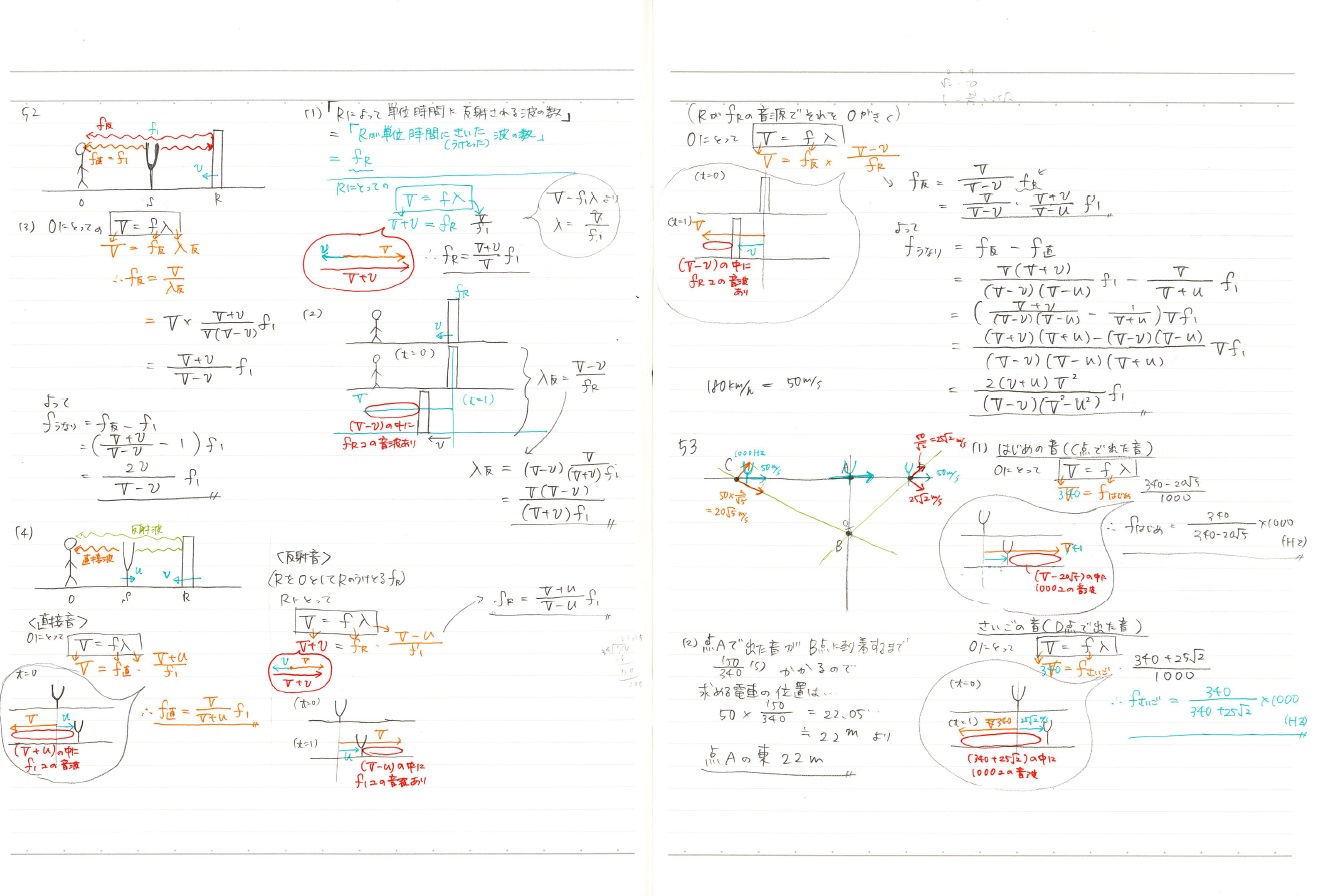 52
f反
f₁
f直=f₁
v
O
S
R
(1) 「Rによって単位時間に反射される波の数」
=「Rが単位時間にきいた波の数」
(うけとった)
= fR
Rにとっての
V = fλ
V+v = fR V/f₁
V=f₁λより
λ = V/f₁
v
V
V+v
∴ fR = (V+v)/V f₁
(3) Oにとっての V = fλ
V = f反 λ反
∴ f反 = V/λ反
= V × (V+v)/(V(V-v)) f₁
= (V+v)/(V-v) f₁
よって
fうなり = f反 - f₁
= ((V+v)/(V-v) - 1) f₁
= 2v/(V-v) f₁
(2)
fR
v
(t=0)
V
(t=1)
(V-v)の中に
fRコの音波あり
v
λ反 = (V-v)/fR
λ反 = (V-v) V/((V+v)f₁)
= V(V-v)/((V+v)f₁)
(4)
反射波
直接波
u
v
O
S
R
<直接音>
Oにとって
V = fλ
V = f直・(V+u)/f₁
t=0
V
u
(V+u)の中に
f₁コの音波
∴ f直 = V/(V+u) f₁
<反射音>
(RをOとしてRのうけとるfR)
Rにとって
V = fλ
V+v = fR・(V-u)/f₁
v
V
V+v
→ fR = (V+v)/(V-u) f₁
(t=0)
(t=1)
V
u
(V-u)の中に
f₁コの音波あり
(RがfRの音源でそれをOがきく)
Oにとって V = fλ
V = f反 × (V-v)/fR
(t=0)
(t=1)
V
v
(V-v)の中に
fRコの音波
あり
f反 = V/(V-v) fR
= V/(V-v)・(V+v)/(V-u) f₁
よって
fうなり = f反 - f直
= V(V+v)/((V-v)(V-u)) f₁ - V/(V+u) f₁
= ((V+v)/((V-v)(V-u)) - 1/(V+u)) V f₁
= ((V+v)(V+u)-(V-v)(V-u))/((V-v)(V-u)(V+u)) V f₁
= 2(v+u)V²/((V-v)(V²-u²)) f₁
180km/h = 50m/s
53
C
1000Hz
50m/s
A
50/√2=25√2 m/s
50m/s
25√2 m/s
=20√5 m/s
O
B
(1) はじめの音(C点で出た音)
Oにとって V = fλ
340 = fはじめ (340-20√5)/1000
(V-20√5)の中に
1000コの音波
∴ fはじめ = 340/(340-20√5) ×1000
(Hz)
さいごの音(D点で出た音)
Oにとって V = fλ
340 = fさいご・(340+25√2)/1000
(t=0)
(t=1)
340
25√2
(340+25√2)の中に
1000コの音波
∴ fさいご = 340/(340+25√2) ×1000
(Hz)
(2) 点Aで出た音がB点に到着するまで
150/340 (s) かかるので
求める電車の位置は…
50 × 150/340 = 22.05…
≒ 22m より
点Aの東 22m